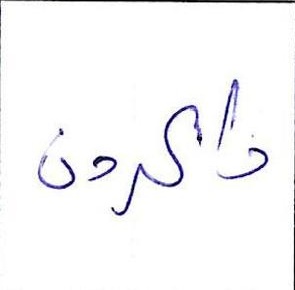 ذاکردن